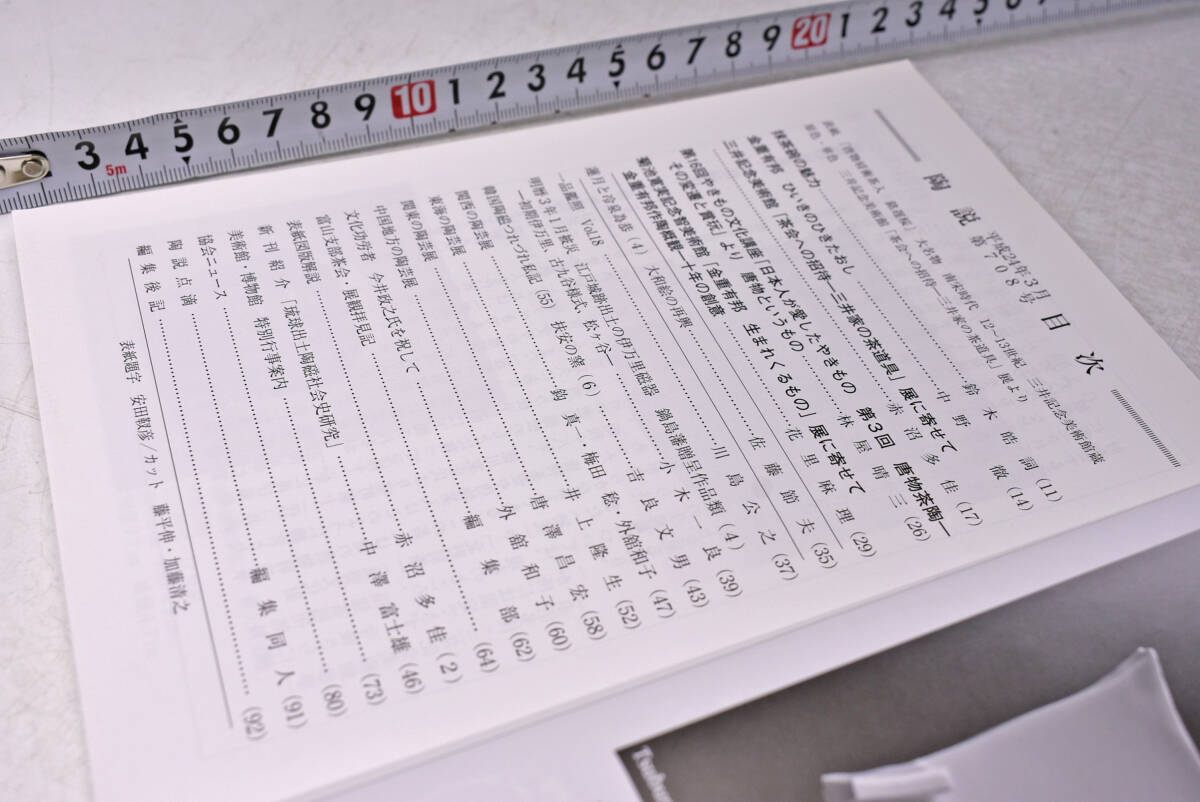 陶説 平成24年3月 第708号 目次
表紙 「唐物肩衝茶入 大名物 南宋時代 12−13世紀 三井記念美術館蔵
三井記念美術館「茶会への招待―三井家の茶道具」展より
抹茶碗の魅力 鈴木皓詞 (11)
金重有邦 ひいきのひきたおし 中野徹 (14)
三井記念美術館「茶会への招待―三井家の茶道具」展に寄せて 赤沼多佳 (17)
第16回やきもの文化講座「日本人が愛したやきもの 第3回 唐物茶陶―
その変遷と賞玩」より 唐物というもの 林屋晴三 (26)
菊池寛実記念智美術館「金重有邦 生まれくるもの」展に寄せて
金重有邦作陶概観―十年の創意 花里麻理 (29)
佐藤節夫 (35)
蓮月と音泉為恭 (4) 大和絵の再興 川島公之 (37)
一品鑑賞 Vol.18
明暦3年1月被災 江戸城跡出土の伊万里磁器 鍋島藩贈呈作品類 (4)
―初期伊万里、古九谷様式、松ヶ谷― 小木一良 (39)
韓国陶磁つれづれ私記 (55) 扶安の窯 (6) 吉良文男 (43)
関西の陶芸展 鈎真一・梅田稔・外舘和子 (47)
東海の陶芸展 井上隆生 (52)
関東の陶芸展 唐澤昌宏 (58)
中国地方の陶芸展 外舘和子 (60)
文化功労者 今井政之氏を祝して 編集部 (62)
富山支部茶会・展観拝見記 (64)
表紙図版解説 赤沼多佳 (2)
新刊紹介「琉球出土陶磁社会史研究」 中澤富士雄 (46)
美術館・博物館 特別行事案内 (73)
協会ニュース (80)
陶説点滴 編集同人 (91)
編集後記 (92)
表紙題字 安田靫彦/カット 藤平伸・加藤清之
3 4 5 6 7 8 9 10 1 2 3 4 5 6 7 8 9 20 1 2 3 4 5 6
5m